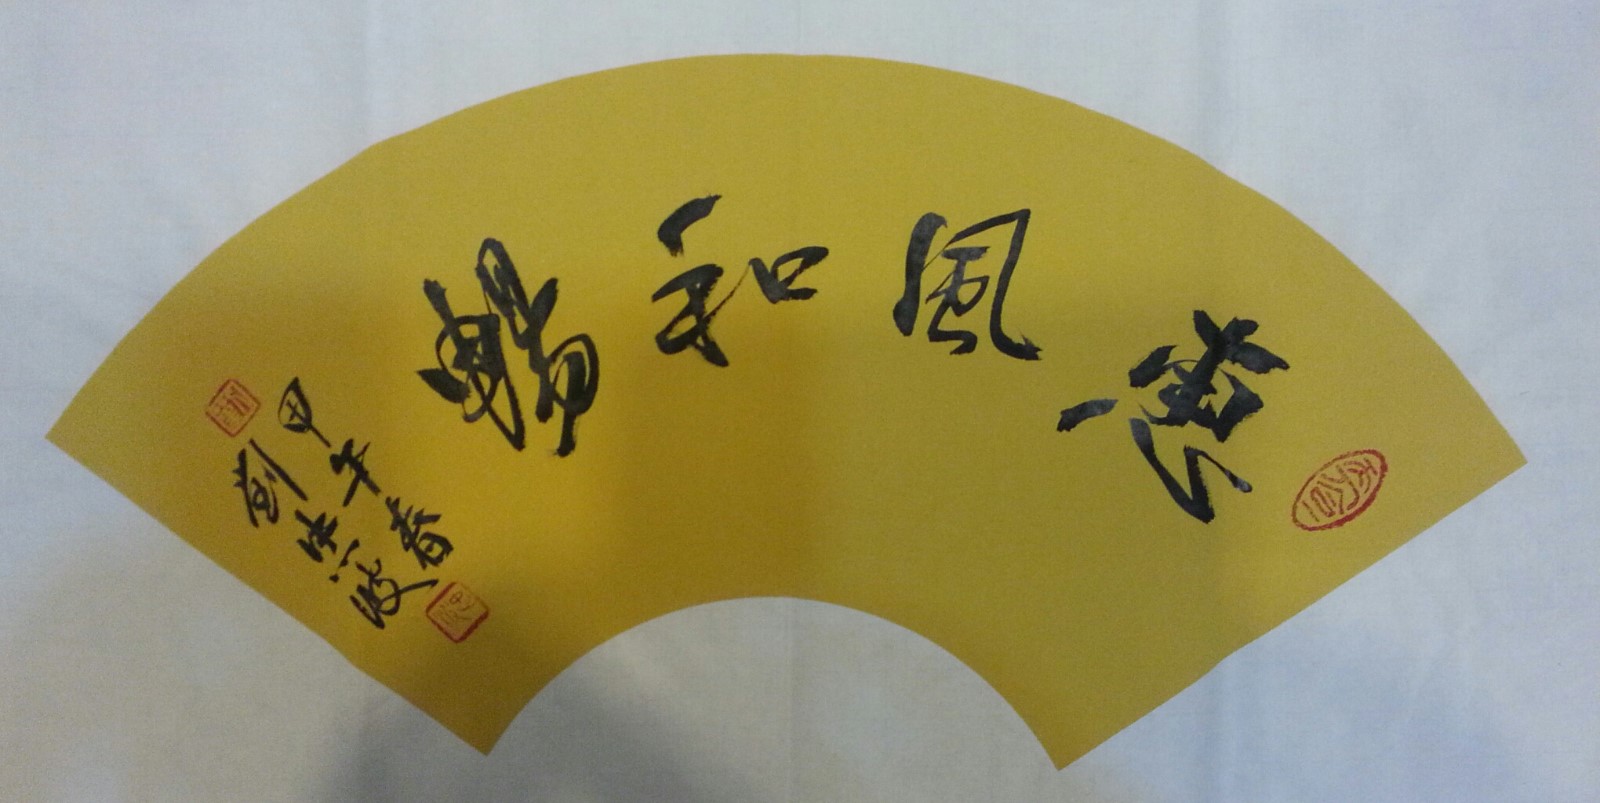 惠風和暢
甲午春
劉
波